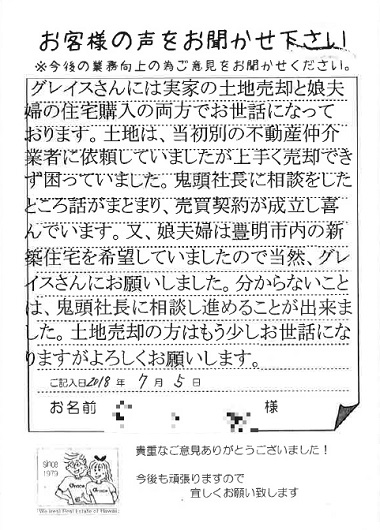 お客様の声をお聞かせ下さい
※今後の業務向上の為ご意見をお聞かせください。
グレイスさんには実家の土地売却と娘夫
婦の住宅購入の両方でお世話になって
おります。土地は、当初別の不動産仲介
業者に依頼していましたが上手く売却でき
ず困っていました。鬼頭社長に相談をした
ところ話がまとまり、売買契約が成立し喜
んでいます。又、娘夫婦は豊明市内の新
築住宅を希望していましたので当然、グレ
イスさんにお願いしました。分からないこと
は、鬼頭社長に相談し進めることが出来ま
した。土地売却の方はもう少しお世話にな
りますがよろしくお願いします。
ご記入日2018年 7月 5日
お名前 様
貴重なご意見ありがとうございました！
今後も頑張りますので
宜しくお願い致します
since
1979
Grace
Grace